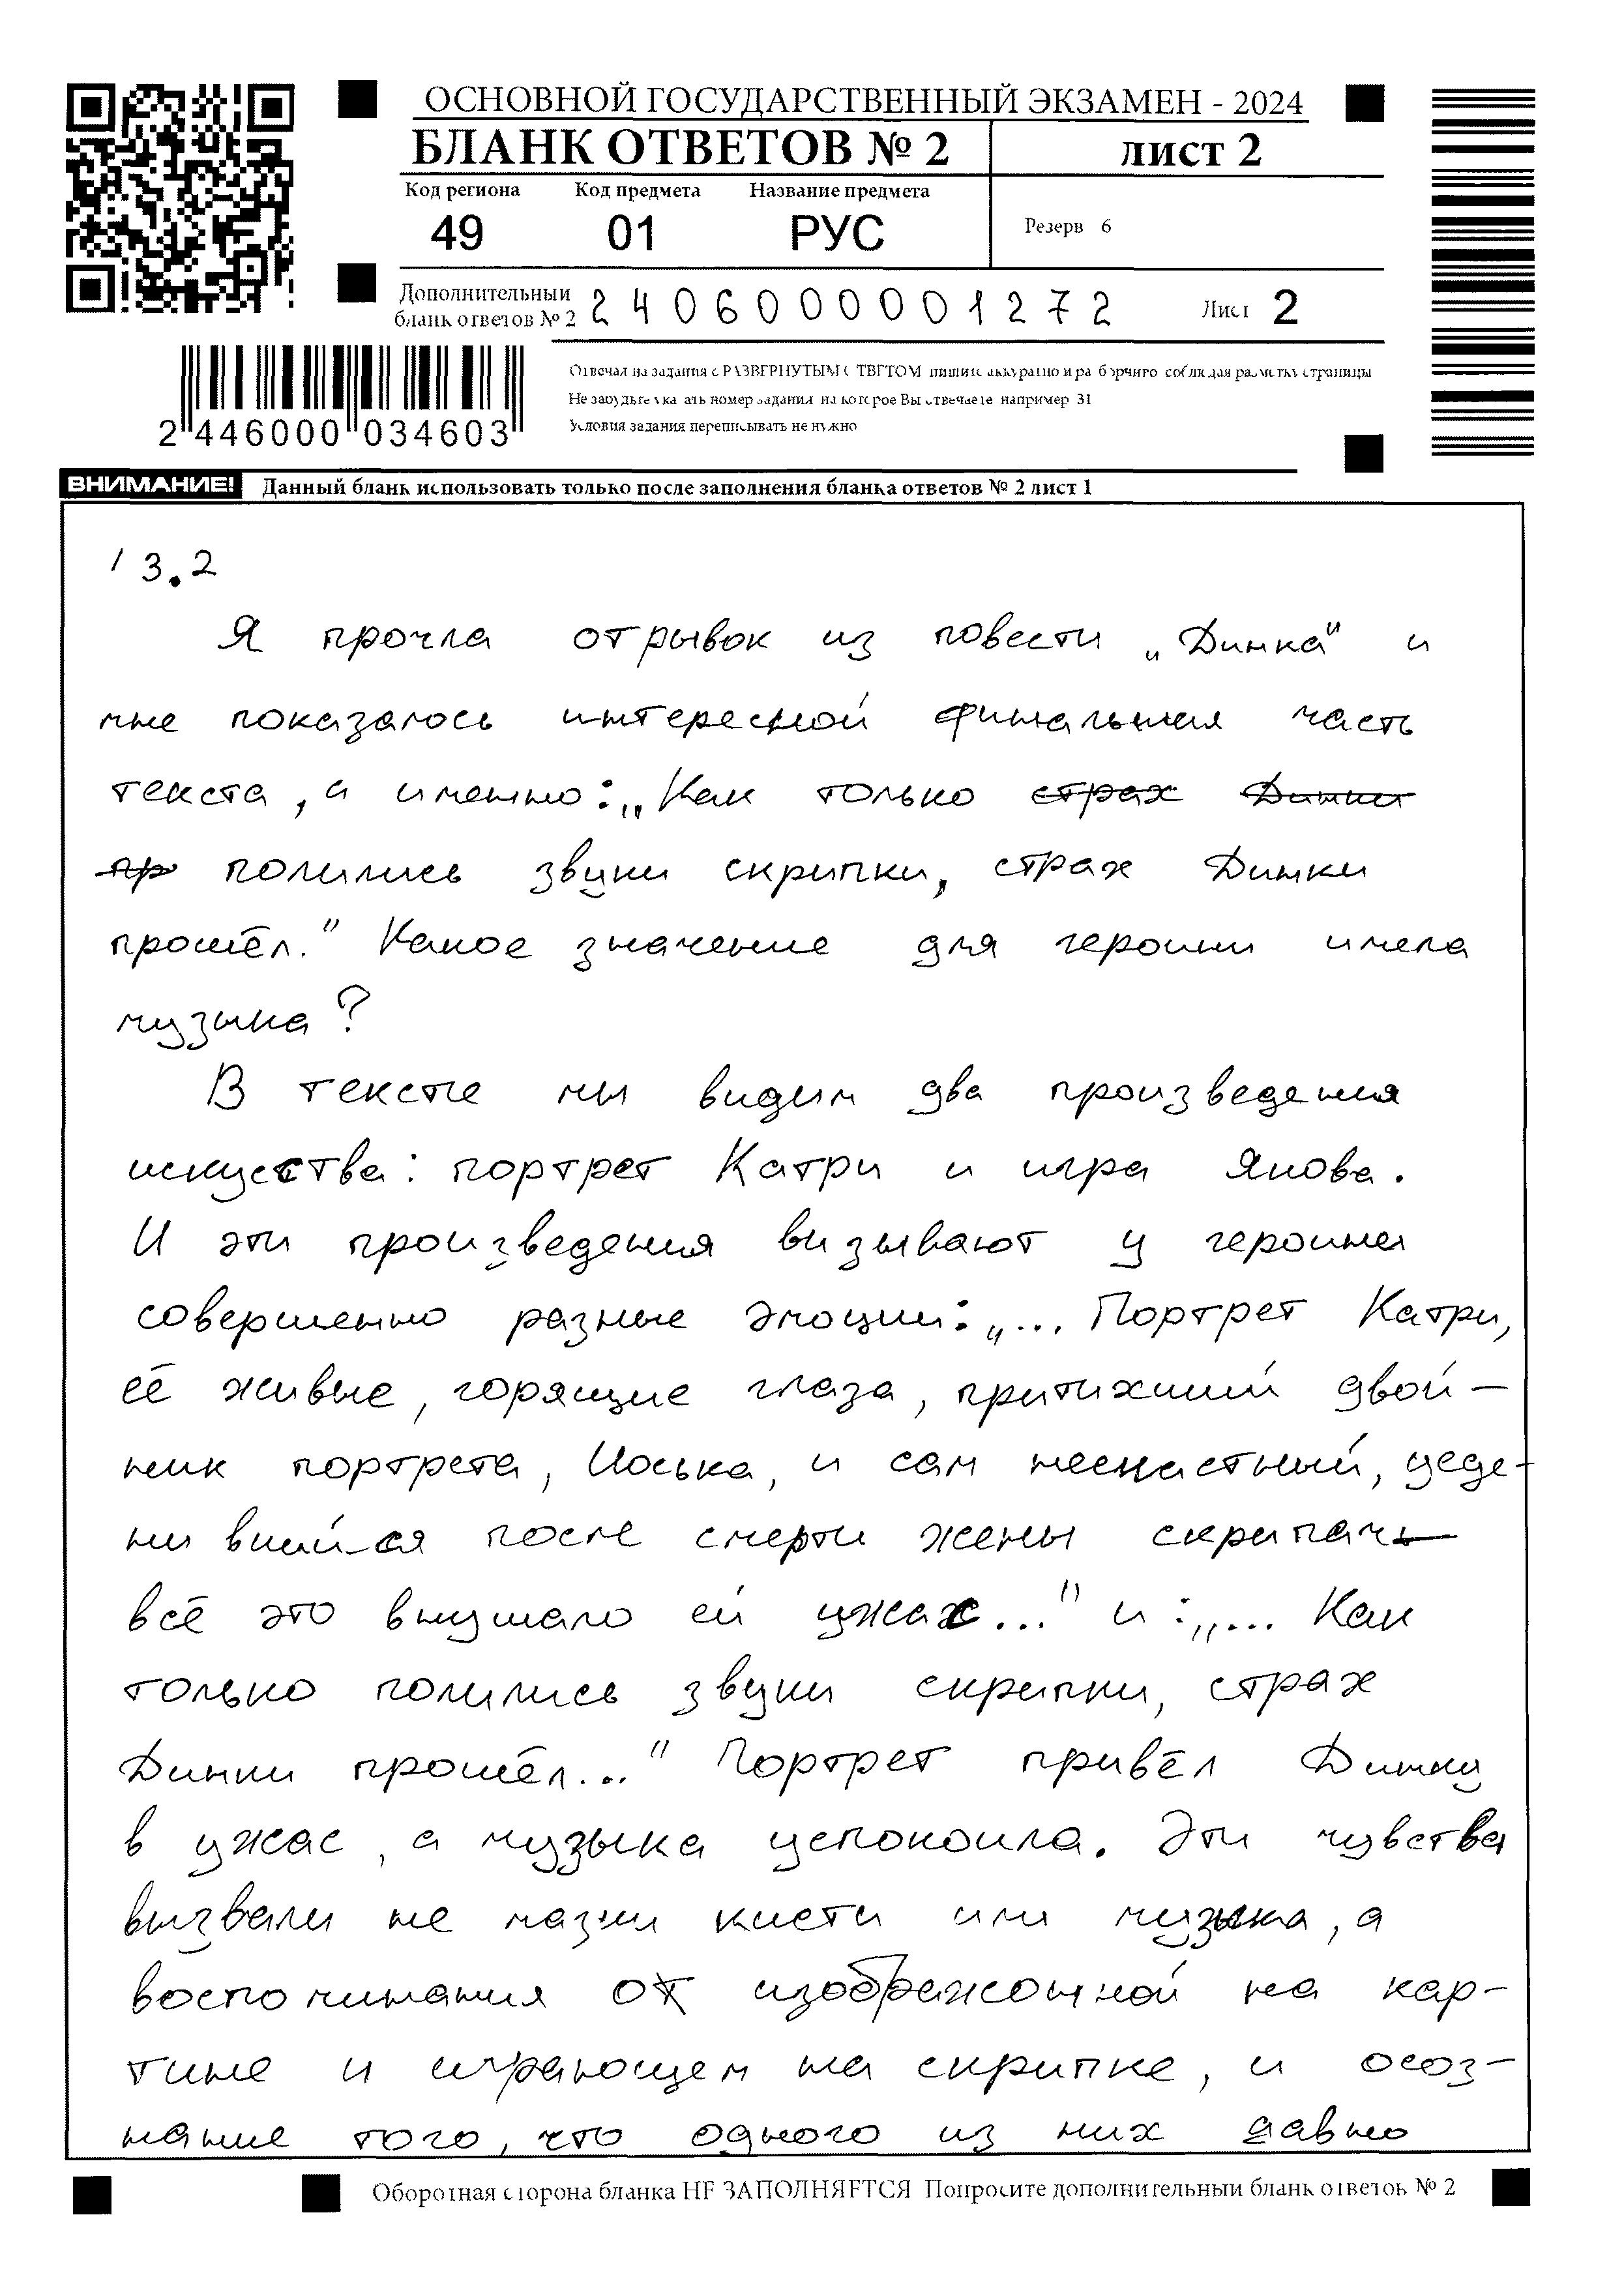 ОСНОВНОЙ ГОСУДАРСТВЕННЫЙ ЭКЗАМЕН - 2024
БЛАНК ОТВЕТОВ № 2
ЛИСТ 2
Код региона
Код предмета
Название предмета
49
01
РУС
Резерв 6
Дополнительный
бланк ответов № 2
2406000001272
Лист 2
Отвечая на задания с РАЗВЕРНУТЫМ ОТВЕТОМ пишите аккуратно и разборчиво соблюдая разметку страницы
Не забудьте указать номер задания на которое Вы отвечаете например 31
Условия задания переписывать не нужно
2 446000 034603
ВНИМАНИЕ! Данный бланк использовать только после заполнения бланка ответов № 2 лист 1
13.2
Я прочла отрывок из повести „Динка" и
мне показалось интересной финальная часть
текста, а именно: „Как только страх Динки
пр полились звуки скрипки, страх Динки
прошёл." Какое значение для героини имела
музыка?
В тексте мы видим два произведения
искусства: портрет Катри и игра Якова.
И эти произведения вызывают у героини
совершенно разные эмоции: „... Портрет Катри,
её живые, горящие глаза, притихший двой-
ник портрета, Иоська, и сам несчастный, уеде-
нившийся после смерти жены скрипач-
всё это внушало ей ужас..." и: „... Как
только полились звуки скрипки, страх
Динки прошёл..." Портрет привёл Динку
в ужас, а музыка успокоила. Эти чувства
вызвали не мазки кисти или музыка, а
воспоминания от изображонной на кар-
тине и играющем на скрипке, и осоз-
нание того, что одного из них давно
Оборотная сторона бланка НЕ ЗАПОЛНЯЕТСЯ Попросите дополнительный бланк ответов № 2